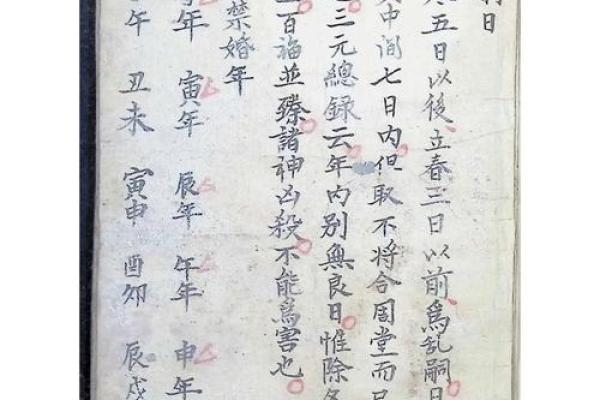 日
五日以後立春三日以前為乱嗣日
中間七日内但取不将合周堂而已
三元總録云年内別無良日惟除
百福並臻諸神凶殺不能為害也
禁婚年
年 寅年 辰年 午年 申年
午 丑未 寅申 酉卯 辰戌